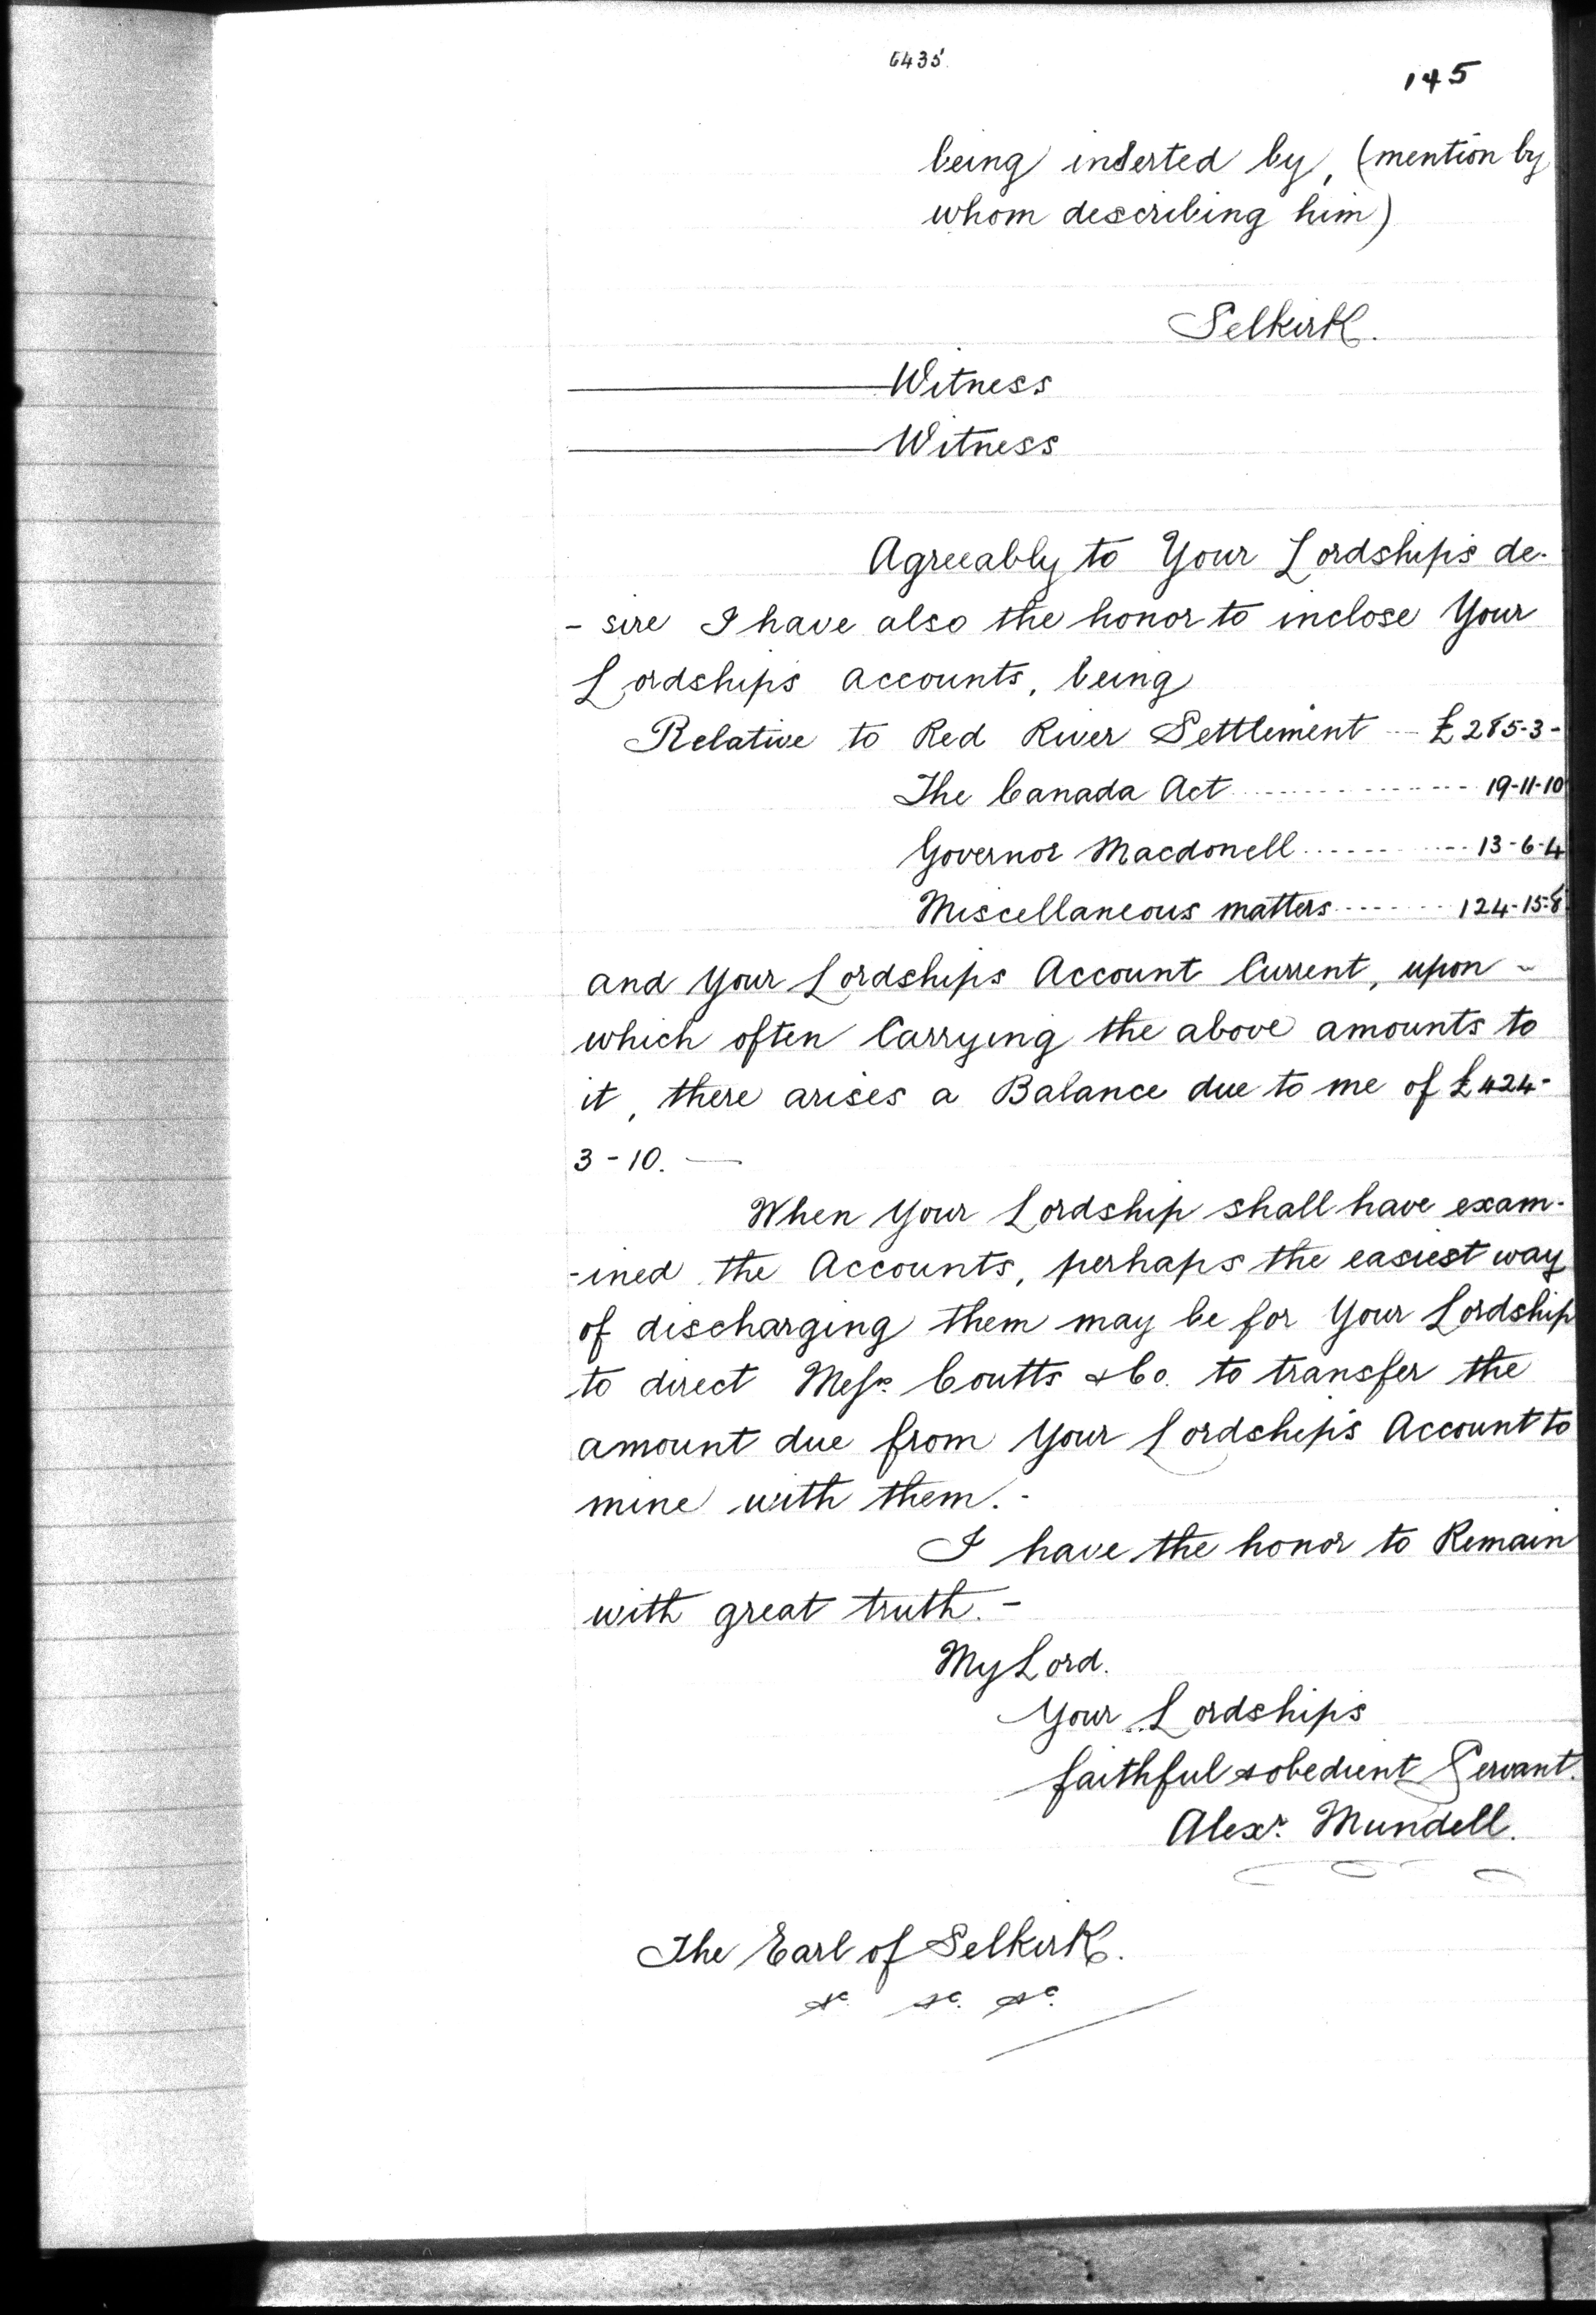 6435
145
being inserted by, (mention by
whom describing him)
Selkirk.
Witness
Witness
Agreeably to Your Lordship's de-
-sire I have also the honor to inclose Your
Lordship's accounts, being
Relative to Red River Settlement -- £285-3-
The Canada Act ---------- 19-11-10
Governor Macdonell ---------- 13-6-4
Miscellaneous matters ------- 124-15-8
and Your Lordships Account Current, upon -
which often Carrying the above amounts to
it, there arises a Balance due to me of £424-
3-10. —
When Your Lordship shall have exam-
-ined the Accounts, perhaps the easiest way
of discharging them may be for Your Lordship
to direct Messrs. Coutts & Co. to transfer the
amount due from Your Lordship's Account to
mine with them. -
I have the honor to Remain
with great truth. -
My Lord.
Your Lordship's
faithful & obedient Servant.
Alexr. Mundell.
The Earl of Selkirk.
&c. &c. &c.